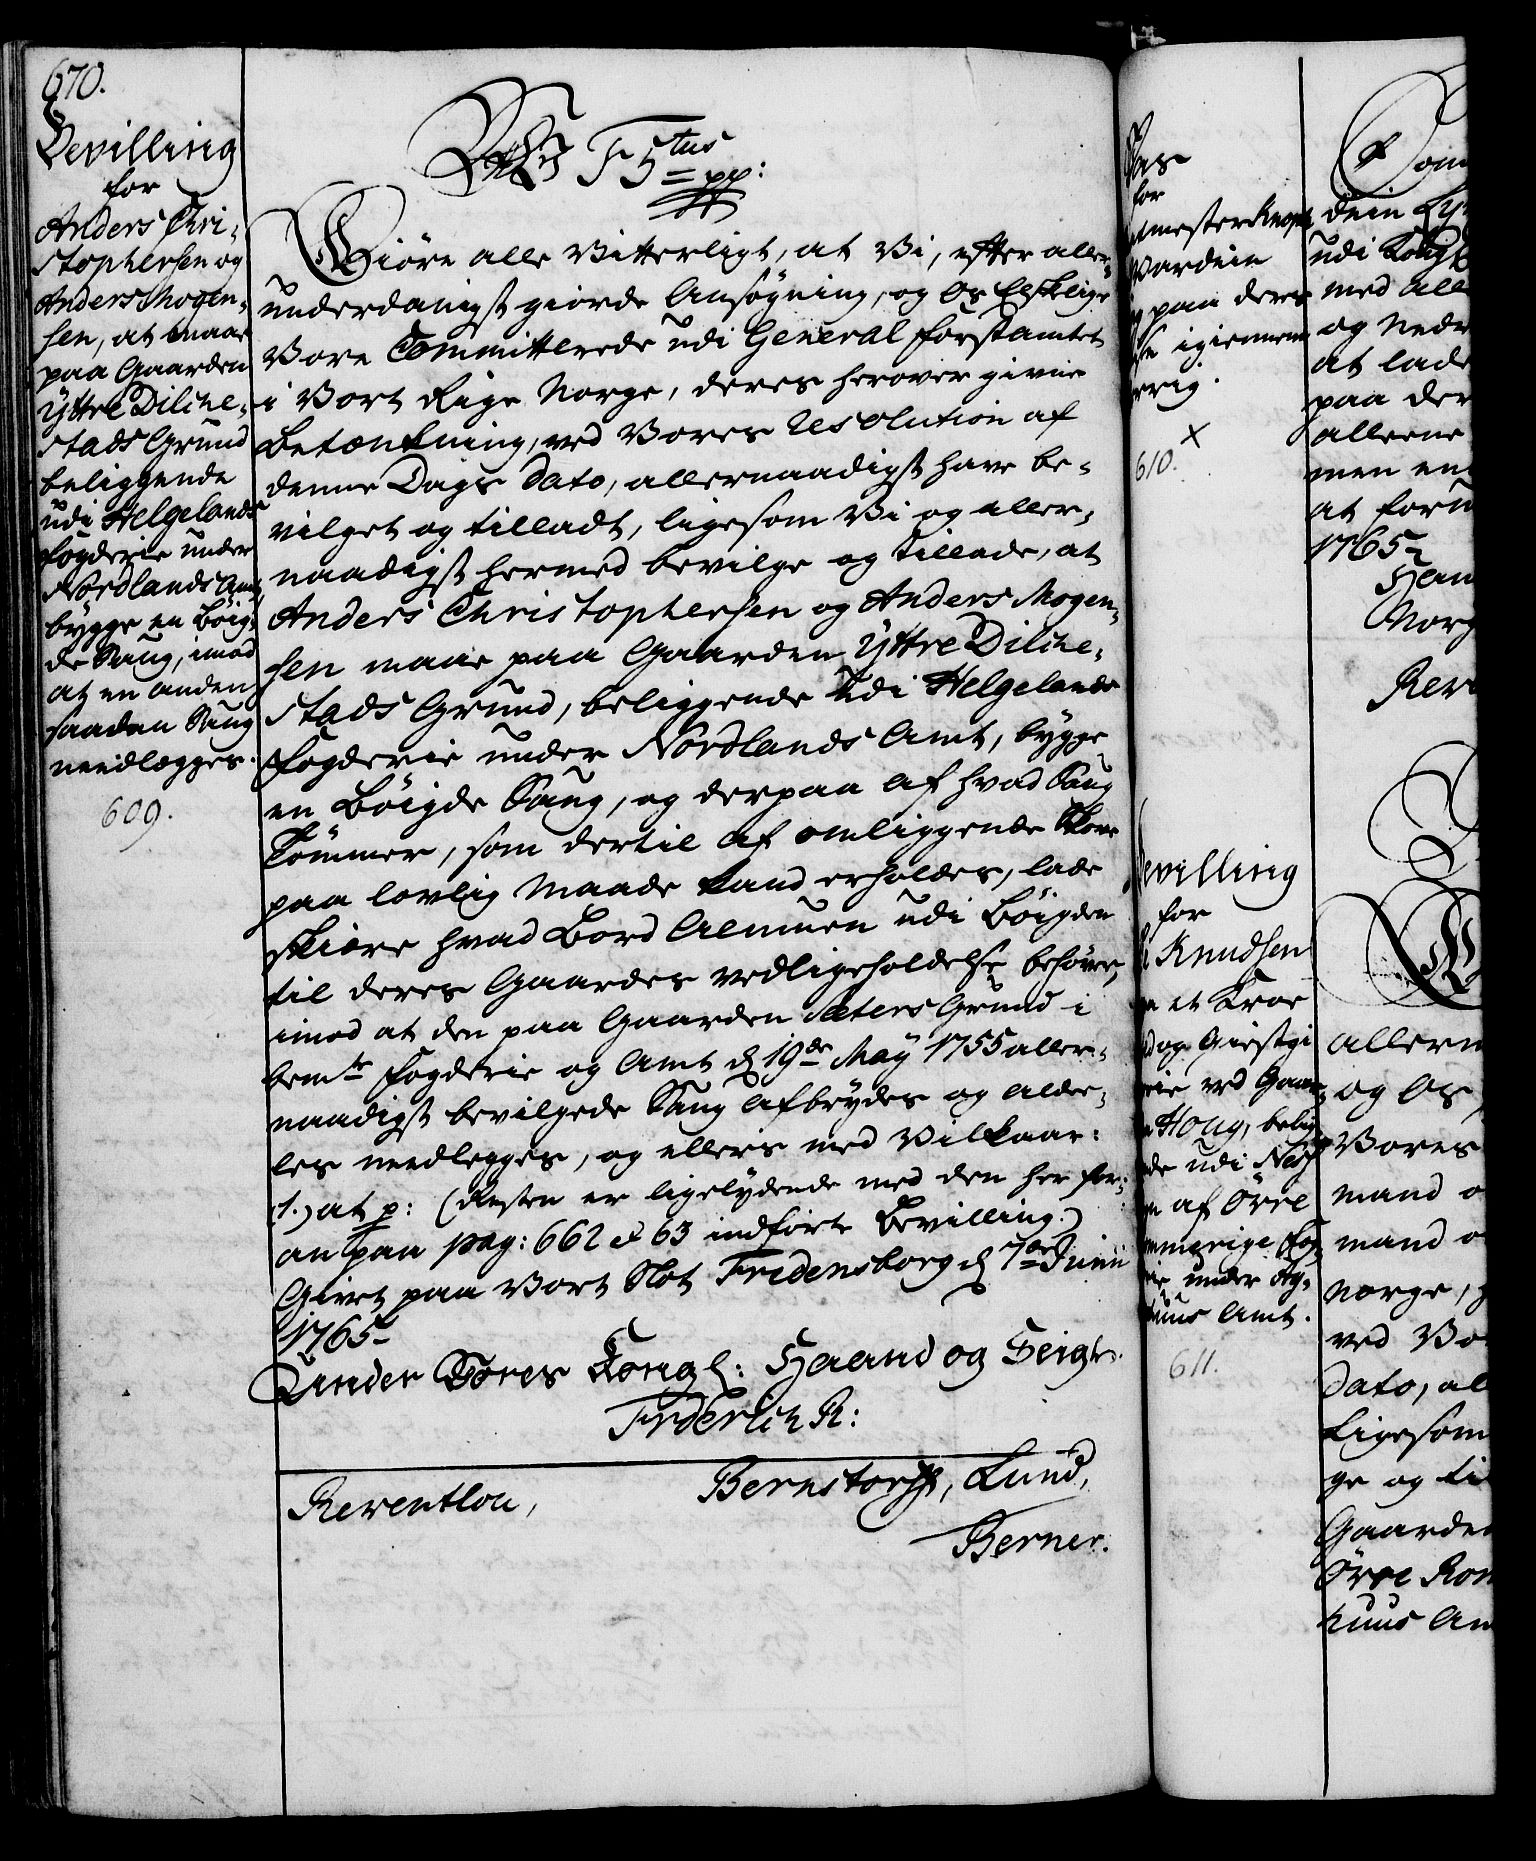 670.
Bevilling
for
Anders Chri-
stophersen og
Anders Mogen-
sen, at maae
paa Gaarden
Ÿttre Dilche-
stads Grund
beliggende
udi Helgelands
Fogderie under
Nordlands Amt,
bygge en Böig-
de Saug, imod
at en anden
saadan Saug
needlægges.
609.
Wii F 5tus pp:
Giöre alle Vitterligt, at Vi, efter aller-
underdanigst giorde Ansøgning, og Os Elskelige
Vore Committerede udi General Forstamtet
i Vort Rige Norge, deres herover givne
Betænkning, ved Vores Resolution af
denne Dags Dato, allernaadigst have be-
vilget og tilladt, ligesom Vi og aller-
naadigst hermed bevilge og tillade, at
Anders Christophersen og Anders Mogen-
sen maae paa Gaarden Ÿttre Dilche-
stads Grund, beliggende udi Helgelands
Fogderie under Nordlands Amt, bygge
en Böigde Saug, og derpaa af hvad Saug
Tömmer, som dertil af omliggende Skove
paa lovlig Maade kand erholdes, lade
skiære hvad Bord Almuen udi Böigden
til deres Gaardes vedligeholdelse behöver,
imod at den paa Gaarden Sæters Grund i
bemte Fogderie og Amt d. 19de Maÿ 1755 aller-
naadigst bevilgede Saug afbrydes og alde-
les needlegges, og ellers med Vilkaar:
1.) at p: (Resten er ligelydende med den her for-
an paa pag: 662 & 63 indförte Bevilling.)
Givet paa Vort Slot Fredensborg d. 7de Junii
1765
Under Vores Kongl: Haand og Seigl.
Friderich R:
Reventlou, Bernstorff, Lund,
Berner.
Pas
for
Vardein
paa deres
igiennem
610.
X
evilling
for
Knudsen
et Kroe
og Giestgi
ved Gaar-
Houg, belig
de udi Nes
af Övre
ommerige Fog-
rie under Ag-
huus Amt.
611.
dein
udi Kong
med all
og nedr
at lade
paa der
allerne
men en
at forn
1765
Haan
Norg
Rev
allern
og Os
Vores
mand o
mand o
Norge,
ved Vo
Dato, al
ligesom
ge og til
Gaarden
Övre Rom
huus Am